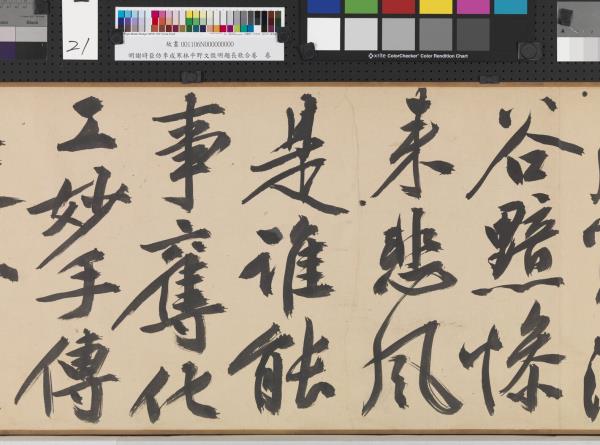 21
故畫 001106N000000000
明謝時臣仿李成寒林平野文徵明題長歌合卷 卷
x-rite ColorChecker Color Rendition Chart
谷黯慘
来悲風
是誰能
事奪化
工妙手傳